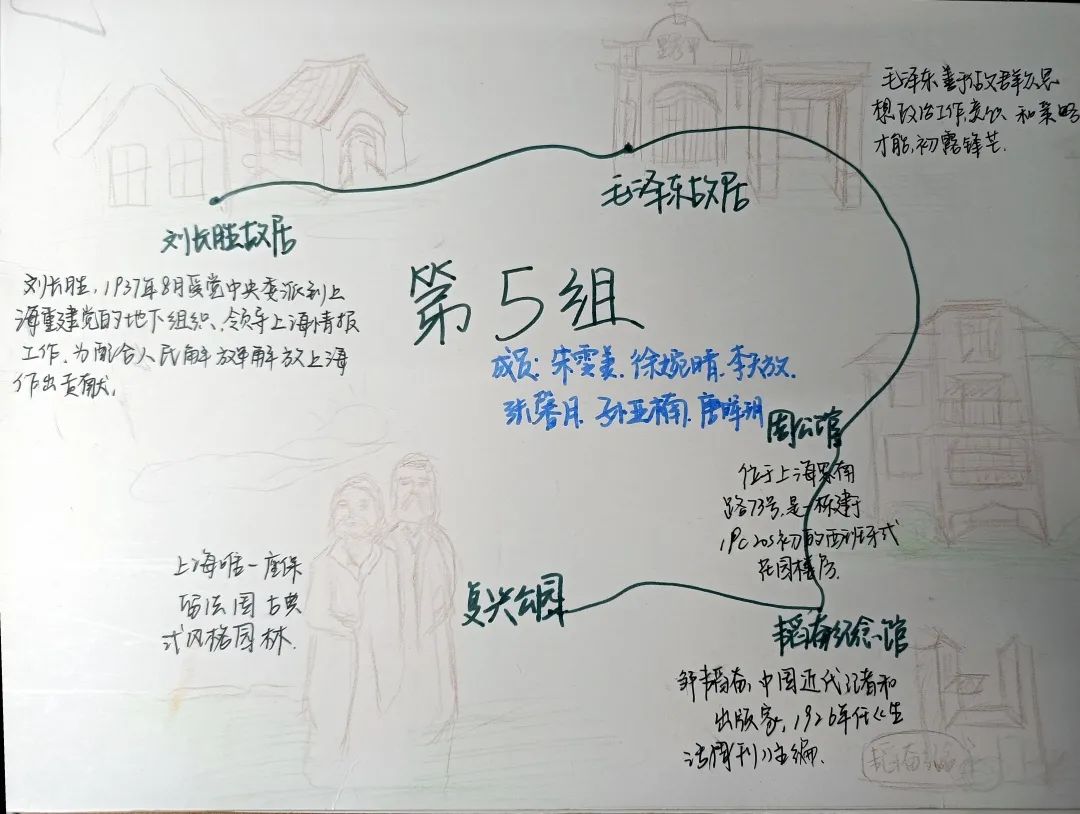 毛泽东善于做群众思
想政治工作
和策略
才能,初露锋芒.
毛泽东故居
刘长胜故居
刘长胜,1937年8月受党中央委派到上
海重建党的地下组织、领导上海情报
工作,为配合人民解放军解放上海
作出贡献.
第5组
成员:宋雯美.徐婉晴.李天放.
张馨月.孙亚楠.唐晖玥
周公馆
位于上海思南
路73号,是一栋建于
1920s初的西班牙式
花园楼房.
上海唯一一座保
留法国古典
式风格园林.
复兴公园
韬奋纪念馆
邹韬奋,中国近代记者和
出版家,1926年任《生
活周刊》主编.
韬奋